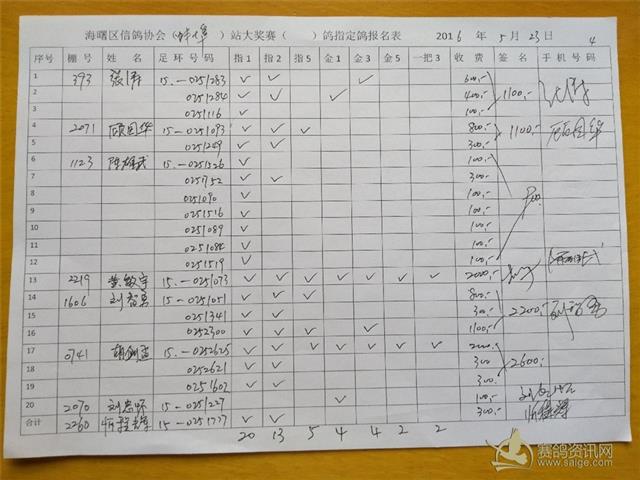 海曙区信鸽协会（蚌埠）站大奖赛（ ）鸽指定鸽报名表 2016 年 5 月 23 日 4
棚号 姓名 足环号码 指1 指2 指5 金1 金2 金5 一把3 收费 签名 手机号码
1 393 15.-0251283 ✓ ✓ ✓ 600,-
2 0251284 ✓ ✓ ✓ 400,- 1100,-
3 0251116 ✓ 100,-
4 2071 顾国华 15-0251093 ✓ ✓ ✓ 800,- 1100,- 顾国华
5 0251249 ✓ ✓ 300,-
6 1123 15-0251526 ✓ 100,-
7 0251752 ✓ ✓ 300,-
8 0251090 ✓ 100,-
9 0251516 ✓ 100,-
10 0251089 ✓ 100,-
11 0251084 ✓ 100,-
12 0251519 ✓ 100,-
13 2219 15.-0251073 ✓ ✓ ✓ ✓ ✓ ✓ ✓ 2000,-
14 1606 刘智勇 15-0251051 ✓ ✓ ✓ 800,-
15 0251341 ✓ ✓ 300,- 2200,-
16 0252300 ✓ ✓ ✓ ✓ 1100,-
17 0741 15.-0252625 ✓ ✓ ✓ ✓ ✓ ✓ ✓ 2000,-
18 0252621 ✓ ✓ 300 2600,-
19 0251602 ✓ ✓ 300,-
20 2070 15-0251227 ✓ 100,-
合计 2260 15-0251777 ✓ ✓ 300,-
20 13 5 4 4 2 2
赛鸽资讯网
www.saige.com